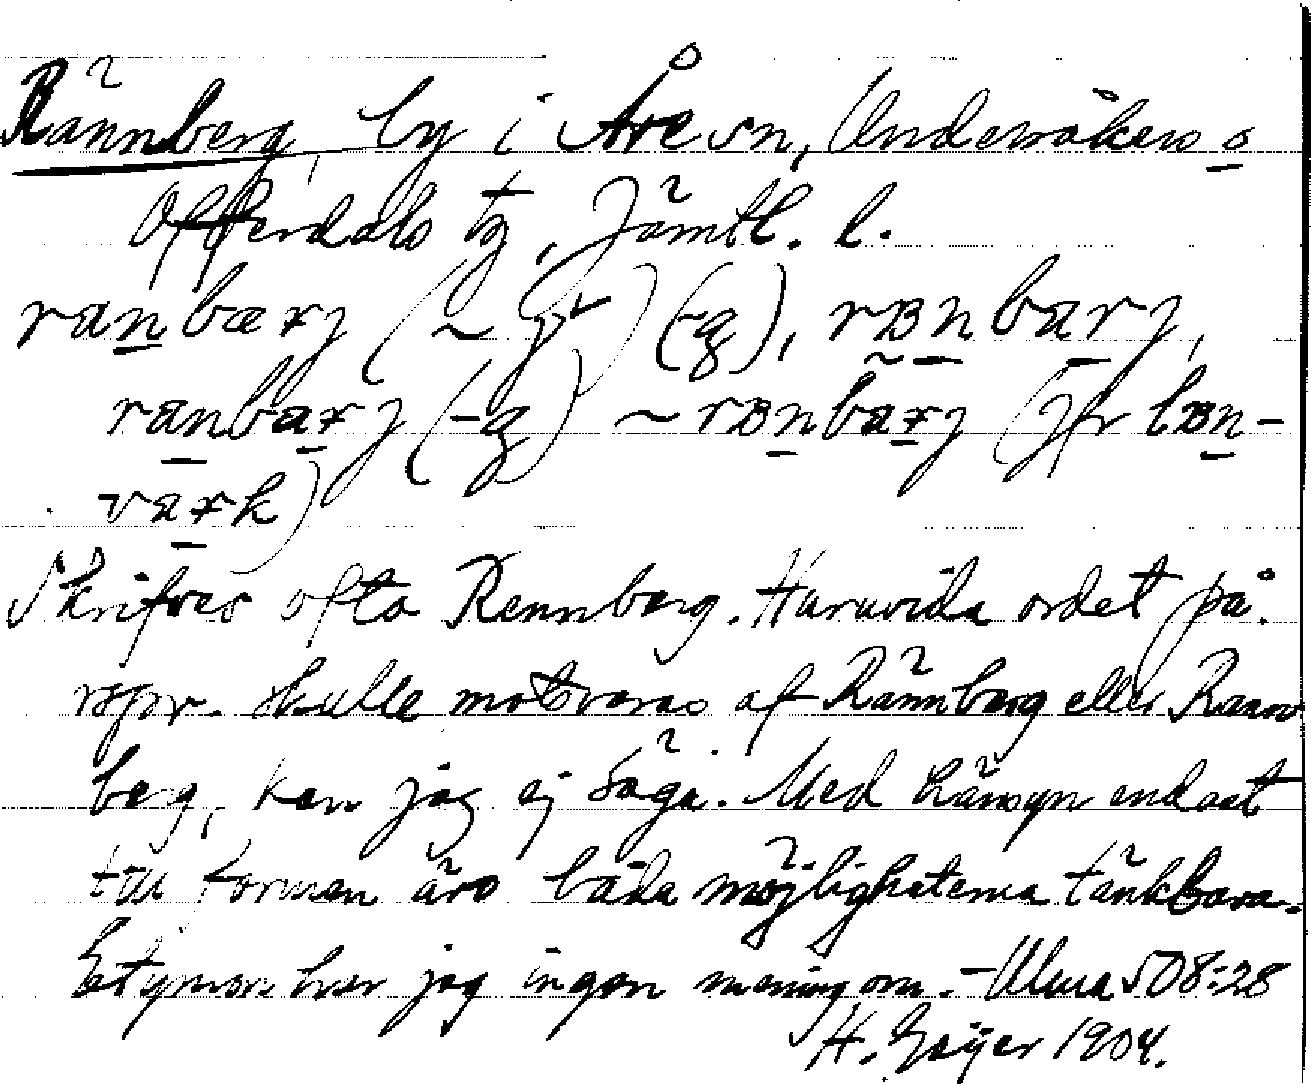 Rännberg, by i Åre sn, Undersåkers o
Offerdals tg, Jämtl. l.
ranbærj (~ g) (-g), rʙnbarj,
ranbarj (-g) ~ rʙnbarj (jfr lʙn-
vark)
Skrifves ofta Rennberg. Huruvida ordet på
rspr. skulle motsvaras af Rännberg eller Rann
berg, kan jag ej säga. Med hänsyn endast
till formen äro båda möjligheterna tänkbara.
Etymon har jag ingen mening om. - Ulma 508:28
H. Geijer 1904.